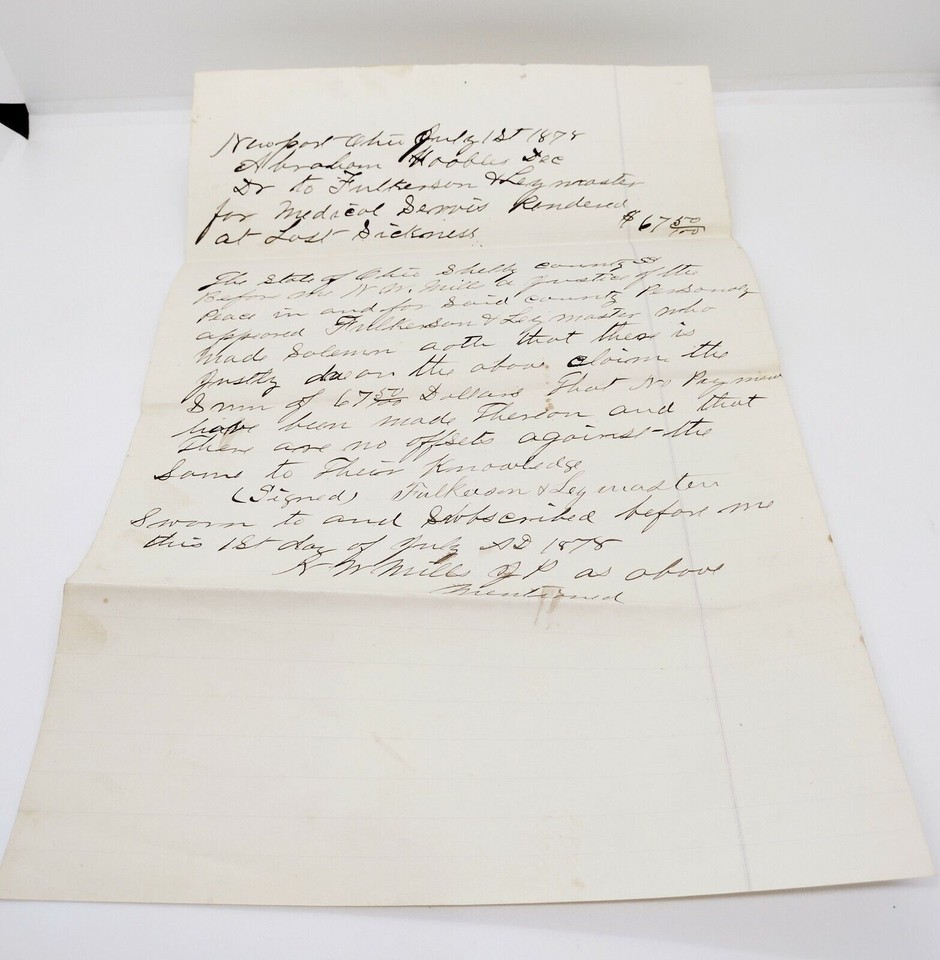 Newport Ohio July 1st 1878
Abraham Hoobler Dec
Dr to Fulkerson & Leymaster
for Medical Servis Rendered
at Last Sickness $67 50/100
The State of Ohio Shelby county SS
Before me W. Mills a Justice of the
Peace in and for Said county Personaly
appeared Fulkerson & Leymaster who
Made Solemn aoth that there is
Justly due on the above claim the
Sum of 67 50/100 Dollars That No Paymen
have been made Thereon and that
There are no offsets against the
Same to Their Knowledge
(Signed) Fulkerson & Leymaster
Sworn to and Subscribed before me
this 1st day of July AD 1878
W Mills J P as above
mentioned